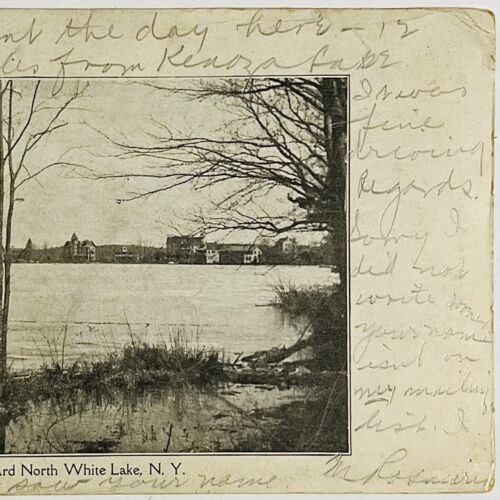 nt the day here - 12
les from Kenoza Lake
It was
fine
driving
Regards.
Sorry I
did not
write
your name
isn't on
my mailing
dist. I
ard North White Lake, N. Y.
saw your name
M Rosari